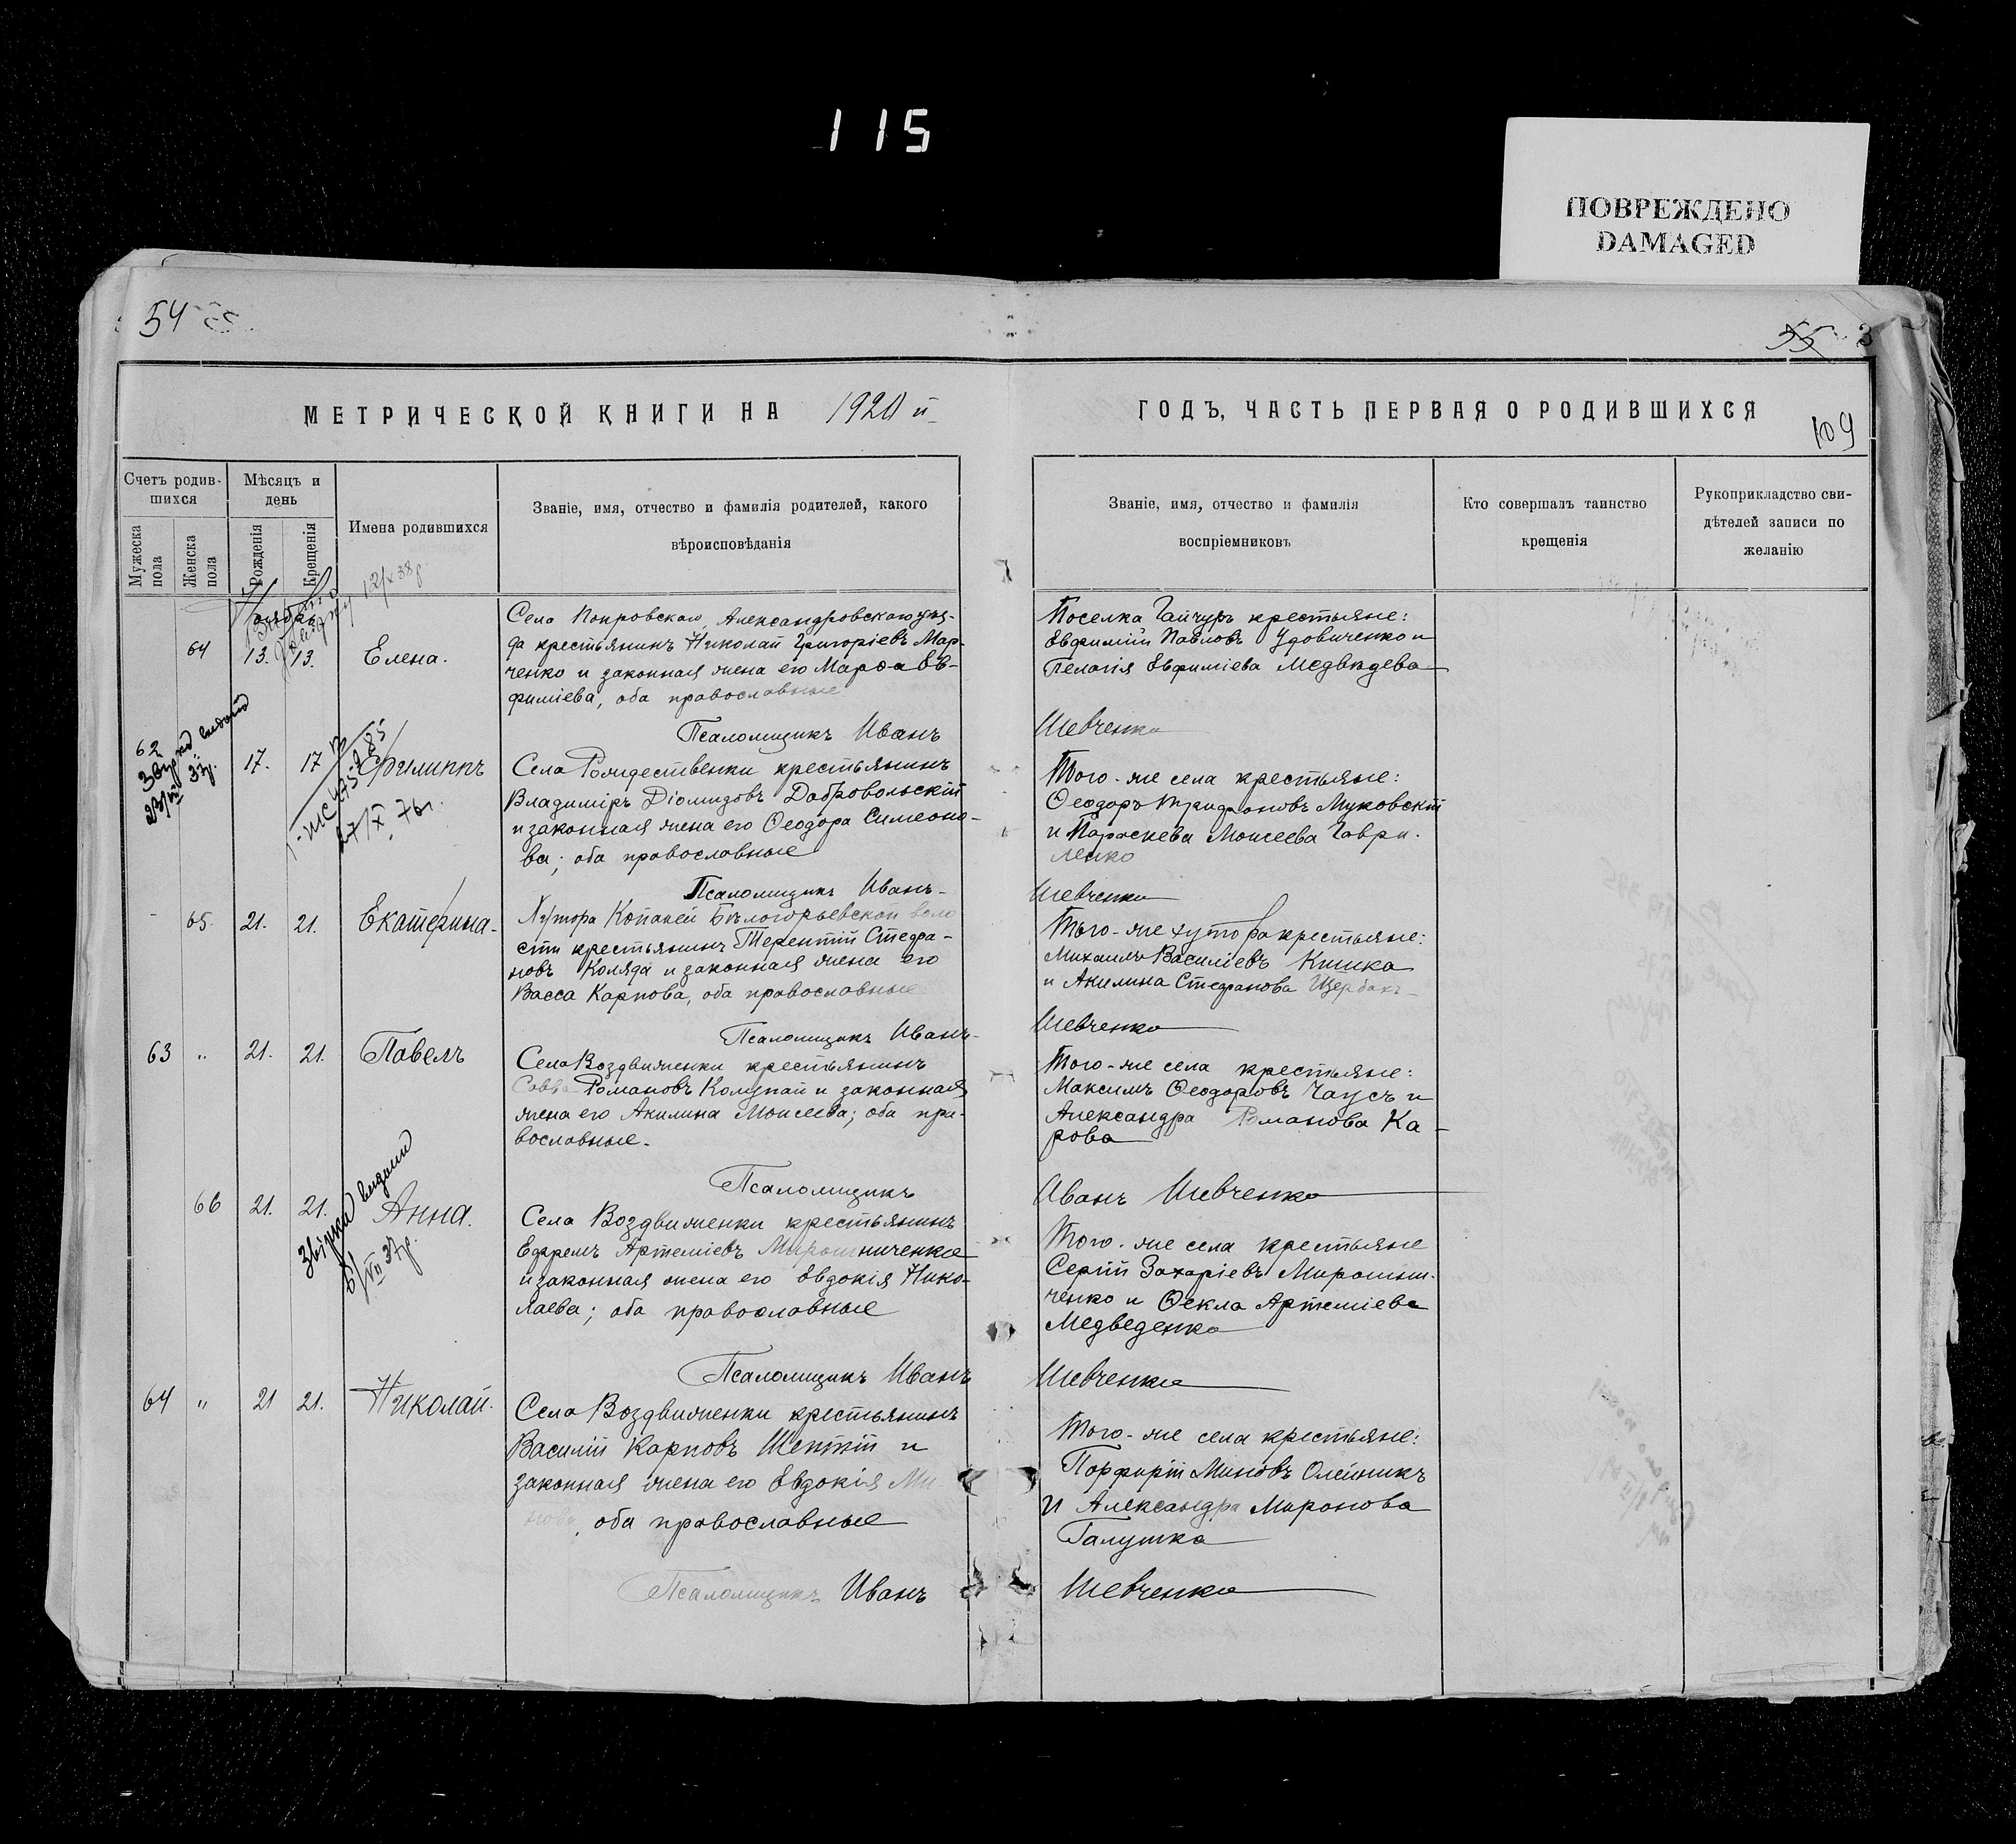 115
ПОВРЕЖДЕНО
DAMAGED
54
55
3
МЕТРИЧЕСКОЙ КНИГИ НА 1920 й
ГОДЪ, ЧАСТЬ ПЕРВАЯ О РОДИВШИХСЯ
109
Счетъ родив-
шихся
Мужеска
пола
Женска
пола
Мѣсяцъ и
день
Рожденія
Крещенія
Имена родившихся
Званіе, имя, отчество и фамилія родителей, какого
вѣроисповѣданія
Званіе, имя, отчество и фамилія
воспріемниковъ
Кто совершалъ таинство
крещенія
Рукоприкладство сви-
дѣтелей записи по
желанію
12/X 38 р
64
13.
13.
Елена.
Села Покровскаго, Александровскаго уѣз-
да крестьянинъ Николай Григоріевъ Мар-
ченко и законная жена его Марѳа Ев-
фиміева, оба православные
Поселка Гайчуръ крестьяне:
Евфимій Павловъ Удовиченко и
Пелагія Евфиміева Медвѣдева
Псаломщикъ Иванъ
Шевченко
62
17.
17
Филиппъ
27/IX. 76г.
Села Рождественки крестьянинъ
Владиміръ Діомидовъ Добровольскій
и законная жена его Ѳеодора Симеоно-
ва; оба православные
Того-же села крестьяне:
Ѳеодоръ Трифоновъ Муковскій
и Параскева Моисеева Гаври-
ленко
Псаломщикъ Иванъ
Шевченко
65.
21.
21.
Екатерина
Хутора Копаней Бѣлогорьевской воло
сти крестьянинъ Терентій Стефа-
новъ Коляда и законная жена его
Васса Карпова, оба православные
Того-же хутора крестьяне:
Михаилъ Василіевъ Кишка
и Акилина Стефанова Щербакъ
Псаломщикъ Иванъ
Шевченко
63
"
21.
21.
Павелъ
Села Воздвиженки крестьянинъ
Савва Романовъ Колупай и законная
жена его Акилина Моисеева; оба пра-
вославные.
Того-же села крестьяне:
Максимъ Ѳеодоровъ Чаусъ и
Александра Романова Ка-
рова
Псаломщикъ
Иванъ Шевченко
66
21.
21.
Анна.
Села Воздвиженки крестьянинъ
Ефремъ Артеміевъ Мирошниченко
и законная жена его Евдокія Нико-
лаева; оба православные
Того-же села крестьяне
Сергій Захаріевъ Мирошни-
ченко и Ѳекла Артеміева
Медведенко
Псаломщикъ Иванъ
Шевченко
64
"
21
21.
Николай.
Села Воздвиженки крестьянинъ
Василій Карповъ Шептій и
законная жена его Евдокія Ми
нова, оба православные
Того-же села крестьяне:
Порфирій Миновъ Олейникъ
и Александра Миронова
Галушка
Псаломщикъ Иванъ
Шевченко